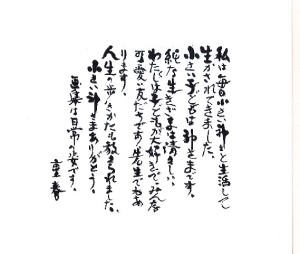 私は毎日小さい神さまと生活して
生かされてきました。
小さい子どもは神さまです。
純な生きざまは清きし、
わたしは子どもが大好きで、みんな
可愛い友だちです。先生でもあ
ります。
人生の歩きかたも教えられました。
小さい神さまありがとう。
は日常の姿です。